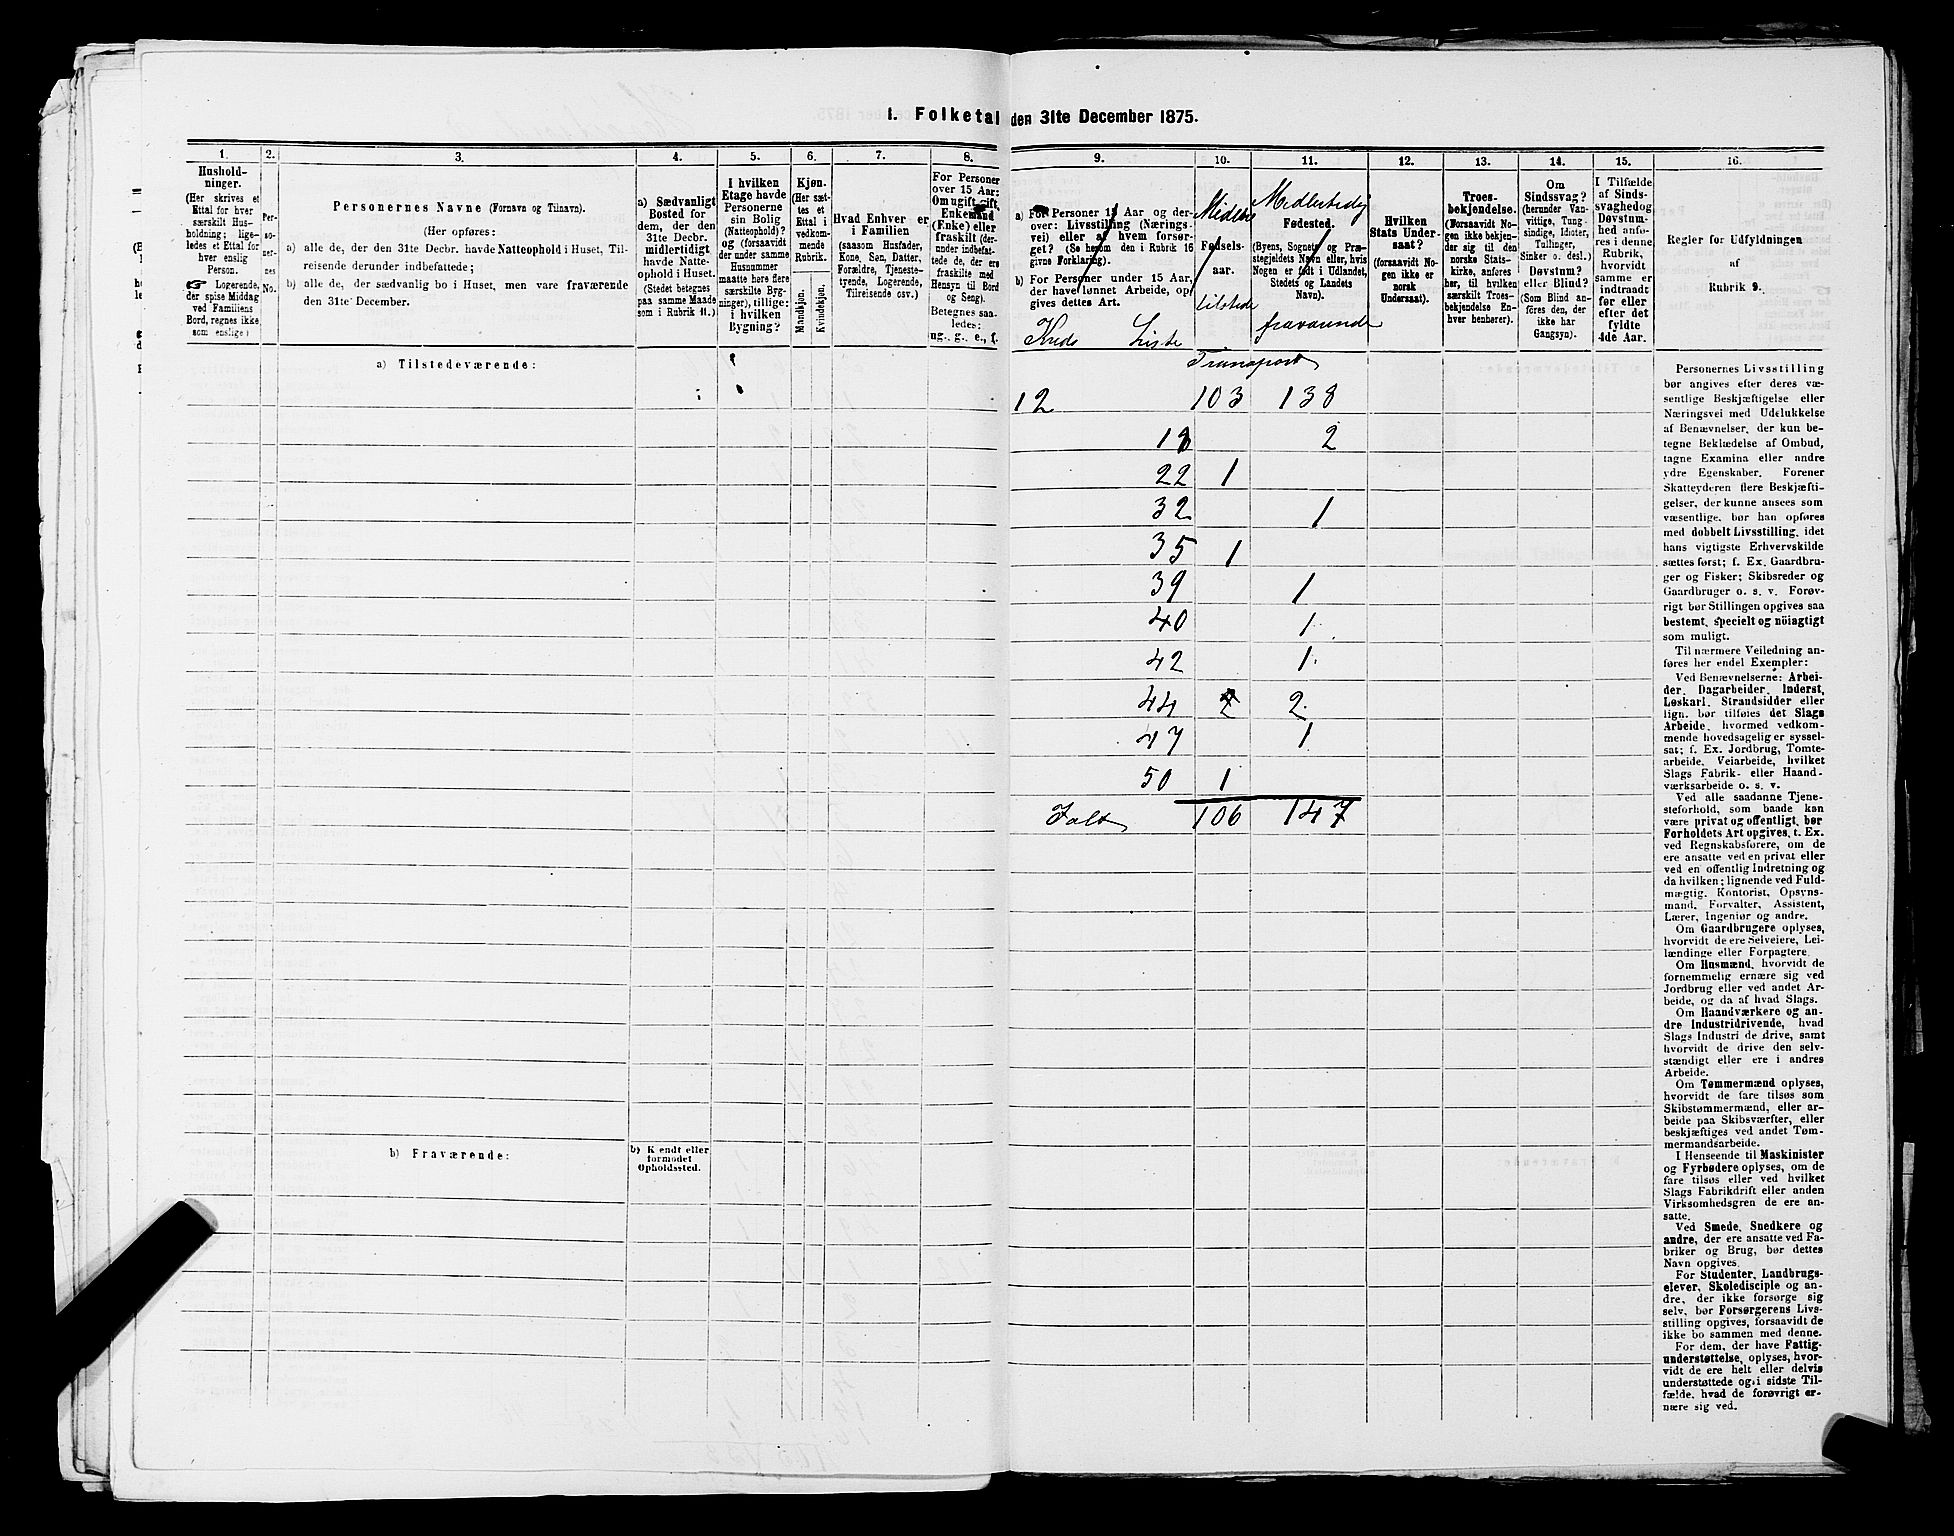 1. Folketal den 31te December 1875.
1.
Hushold-
ninger.
(Her skrives et
Ettal for hver
særskilt Hus-
holdning; lige-
ledes et Ettal for
hver enslig
Person.
☞ Logerende,
der spise Middag
ved Familiens
Bord, regnes ikke
som enslige)
2.
Per-
so-
ner-
nes
No.
3.
Personernes Navne (Fornavn og Tilnavn).
(Her opføres:
a) alle de, der den 31te Decbr. havde Natteophold i Huset, Til-
reisende derunder indbefattede;
b) alle de, der sædvanlig bo i Huset, men vare fraværende
den 31te December.
4.
a) Sædvanligt
Bosted for
dem, der den
31te Decbr.
midlertidigt
havde Natte-
ophold i Huset.
(Stedet betegnes
paa samme Maade
som i Rubrik 11.)
5.
I hvilken
Etage havde
Personerne
sin Bolig
(Natteophold)?
og (forsaavidt
der under samme
Husnummer
maatte høre flere
særskilte Byg-
ninger), tillige:
i hvilken
Bygning?
6.
Kjøn.
(Her sæt-
tes et
Ettal i
vedkom-
mende
Rubrik.
Mandkjøn.
Kvindekjøn.
7.
Hvad Enhver er
i Familien
(saasom Husfader,
Kone, Søn, Datter,
Forældre, Tjeneste-
tyende, Logerende,
Tilreisende osv.)
8.
For Personer
over 15 Aar:
Om ugift, gift,
Enkemand
(Enke) eller
fraskilt (der-
under indbefat-
tede de, der ere
fraskilte med
Hensyn til Bord
og Seng).
Betegnes saa-
ledes:
ug., g., e., f.
9.
a) For Personer 15 Aar og der-
over: Livsstilling (Nærings-
vei) eller af hvem forsør-
get? (Se herom den i Rubrik 16
givne Forklaring).
b) For Personer under 15 Aar,
der have lønnet Arbeide, op-
gives dettes Art.
Kreds Liste
10.
Midlert
Fødsels-
aar.
tilstede
11.
Medlertidig
Fødested.
(Byens, Sognets og Præ-
stegjeldets Navn eller, hvis
Nogen er født i Udlandet,
Stedets og Landets
Navn).
fraværende
12.
Hvilken
Stats Under-
saat?
(forsaavidt No-
gen ikke er
norsk
Undersaat).
13.
Troes-
bekjendelse.
(Forsaavidt No-
gen ikke bekjen-
der sig til den
norske Stats-
kirke, anføres
her, til hvilken
særskilt Troes-
bekjendelse En-
hver henhører).
14.
Om
Sindssvag?
(herunder Van-
vittige, Tung-
sindige, Idioter,
Tullinger,
Sinker o. desl.)
Døvstum?
eller Blind?
(Som Blind an-
føres den, der
ikke har
Gangsyn).
15.
I Tilfælde
af Sinds-
svaghed og
Døvstum-
hed anfø-
res i denne
Rubrik,
hvorvidt
samme er
indtraadt
før eller
efter det
fyldte
4de Aar.
16.
Regler for Udfyldningen
af
Rubrik 9.
a) Tilstedeværende:
Transport
12 103 138
18 2
22 1
32 1
35 1
39 1
40 1
42 1
44 2 2
47 1
50 1
Ialt 106 147
b) Fraværende:
b) Kjendt eller
formodet
Opholdssted.
Personernes Livsstilling
bør angives efter deres væ-
sentlige Beskjæftigelse eller
Næringsvei med Udelukkelse
af Benævnelser, der kun be-
tegne Beklædelse af Ombud,
tagne Examina eller andre
ydre Egenskaber. Forener
Skatteyderen flere Beskjæfti-
gelser, der kunne ansees som
væsentlige, bør han opføres
med dobbelt Livsstilling, idet
hans vigtigste Erhvervskilde
sættes først; f. Ex. Gaardbru-
ger og Fisker; Skibsreder og
Gaardbruger o. s. v. Forøv-
rigt bør Stillingen opgives saa
bestemt, specielt og nöiagtigt
som muligt.
Til nærmere Veiledning an-
føres her endel Exempler:
Ved Benævnelserne: Arbei-
der, Dagarbeider, Inderst,
Løskarl, Strandsidder eller
lign. bør tilføies det Slags
Arbeide, hvormed vedkom-
mende hovedsagelig er syssel-
sat; f. Ex. Jordbrug, Tomte-
arbeide, Veiarbeide, hvilket
Slags Fabrik- eller Haand-
værksarbeide o. s. v.
Ved alle saadanne Tjene-
steforhold, som baade kan
være privat og offentligt, bør
Forholdets Art opgives, t. Ex.
ved Regnskabsførere, om de
ere ansatte ved en privat eller
ved en offentlig Indretning og
da hvilken; lignende ved Fuld-
mægtig, Kontorist, Opsyns-
mand, Forvalter, Assistent,
Lærer, Ingeniør og andre.
Om Gaardbrugere oplyses,
hvorvidt de ere Selveiere, Lei-
lændinge eller Forpagtere.
Om Husmænd, hvorvidt de
fornemmelig ernære sig ved
Jordbrug eller ved andet Ar-
beide, og da af hvad Slags.
Om Haandværkere og an-
dre Industridrivende, hvad
Slags Industri de drive, samt
hvorvidt de drive den selv-
stændigt eller ere i andres
Arbeide.
Om Tømmermænd oplyses,
hvorvidt de fare tilsøs som
Skibstømmermænd, eller ar-
beide paa Skibsværfter, eller
beskjæftiges ved andet Tøm-
mermandsarbeide.
I Henseende til Maskinister
og Fyrbødere oplyses, om de
fare tilsøs eller ved hvilket
Slags Fabrikdrift eller anden
Virksomhedsgren de ere an-
satte.
Ved Smede, Snedkere og
andre, der ere ansatte ved Fa-
briker og Brug, bør dettes
Navn opgives.
For Studenter, Landbrugs-
elever, Skoledisciple og an-
dre, der ikke forsørge sig
selv, bør Forsørgerens Livs-
stilling opgives, forsaavidt de
ikke bo sammen med denne.
For dem, der have Fattig-
understøttelse, oplyses, hvor-
vidt de ere helt eller delvis
understøttede og i sidste Til-
fælde, hvad de forøvrigt er-
nære sig ved.